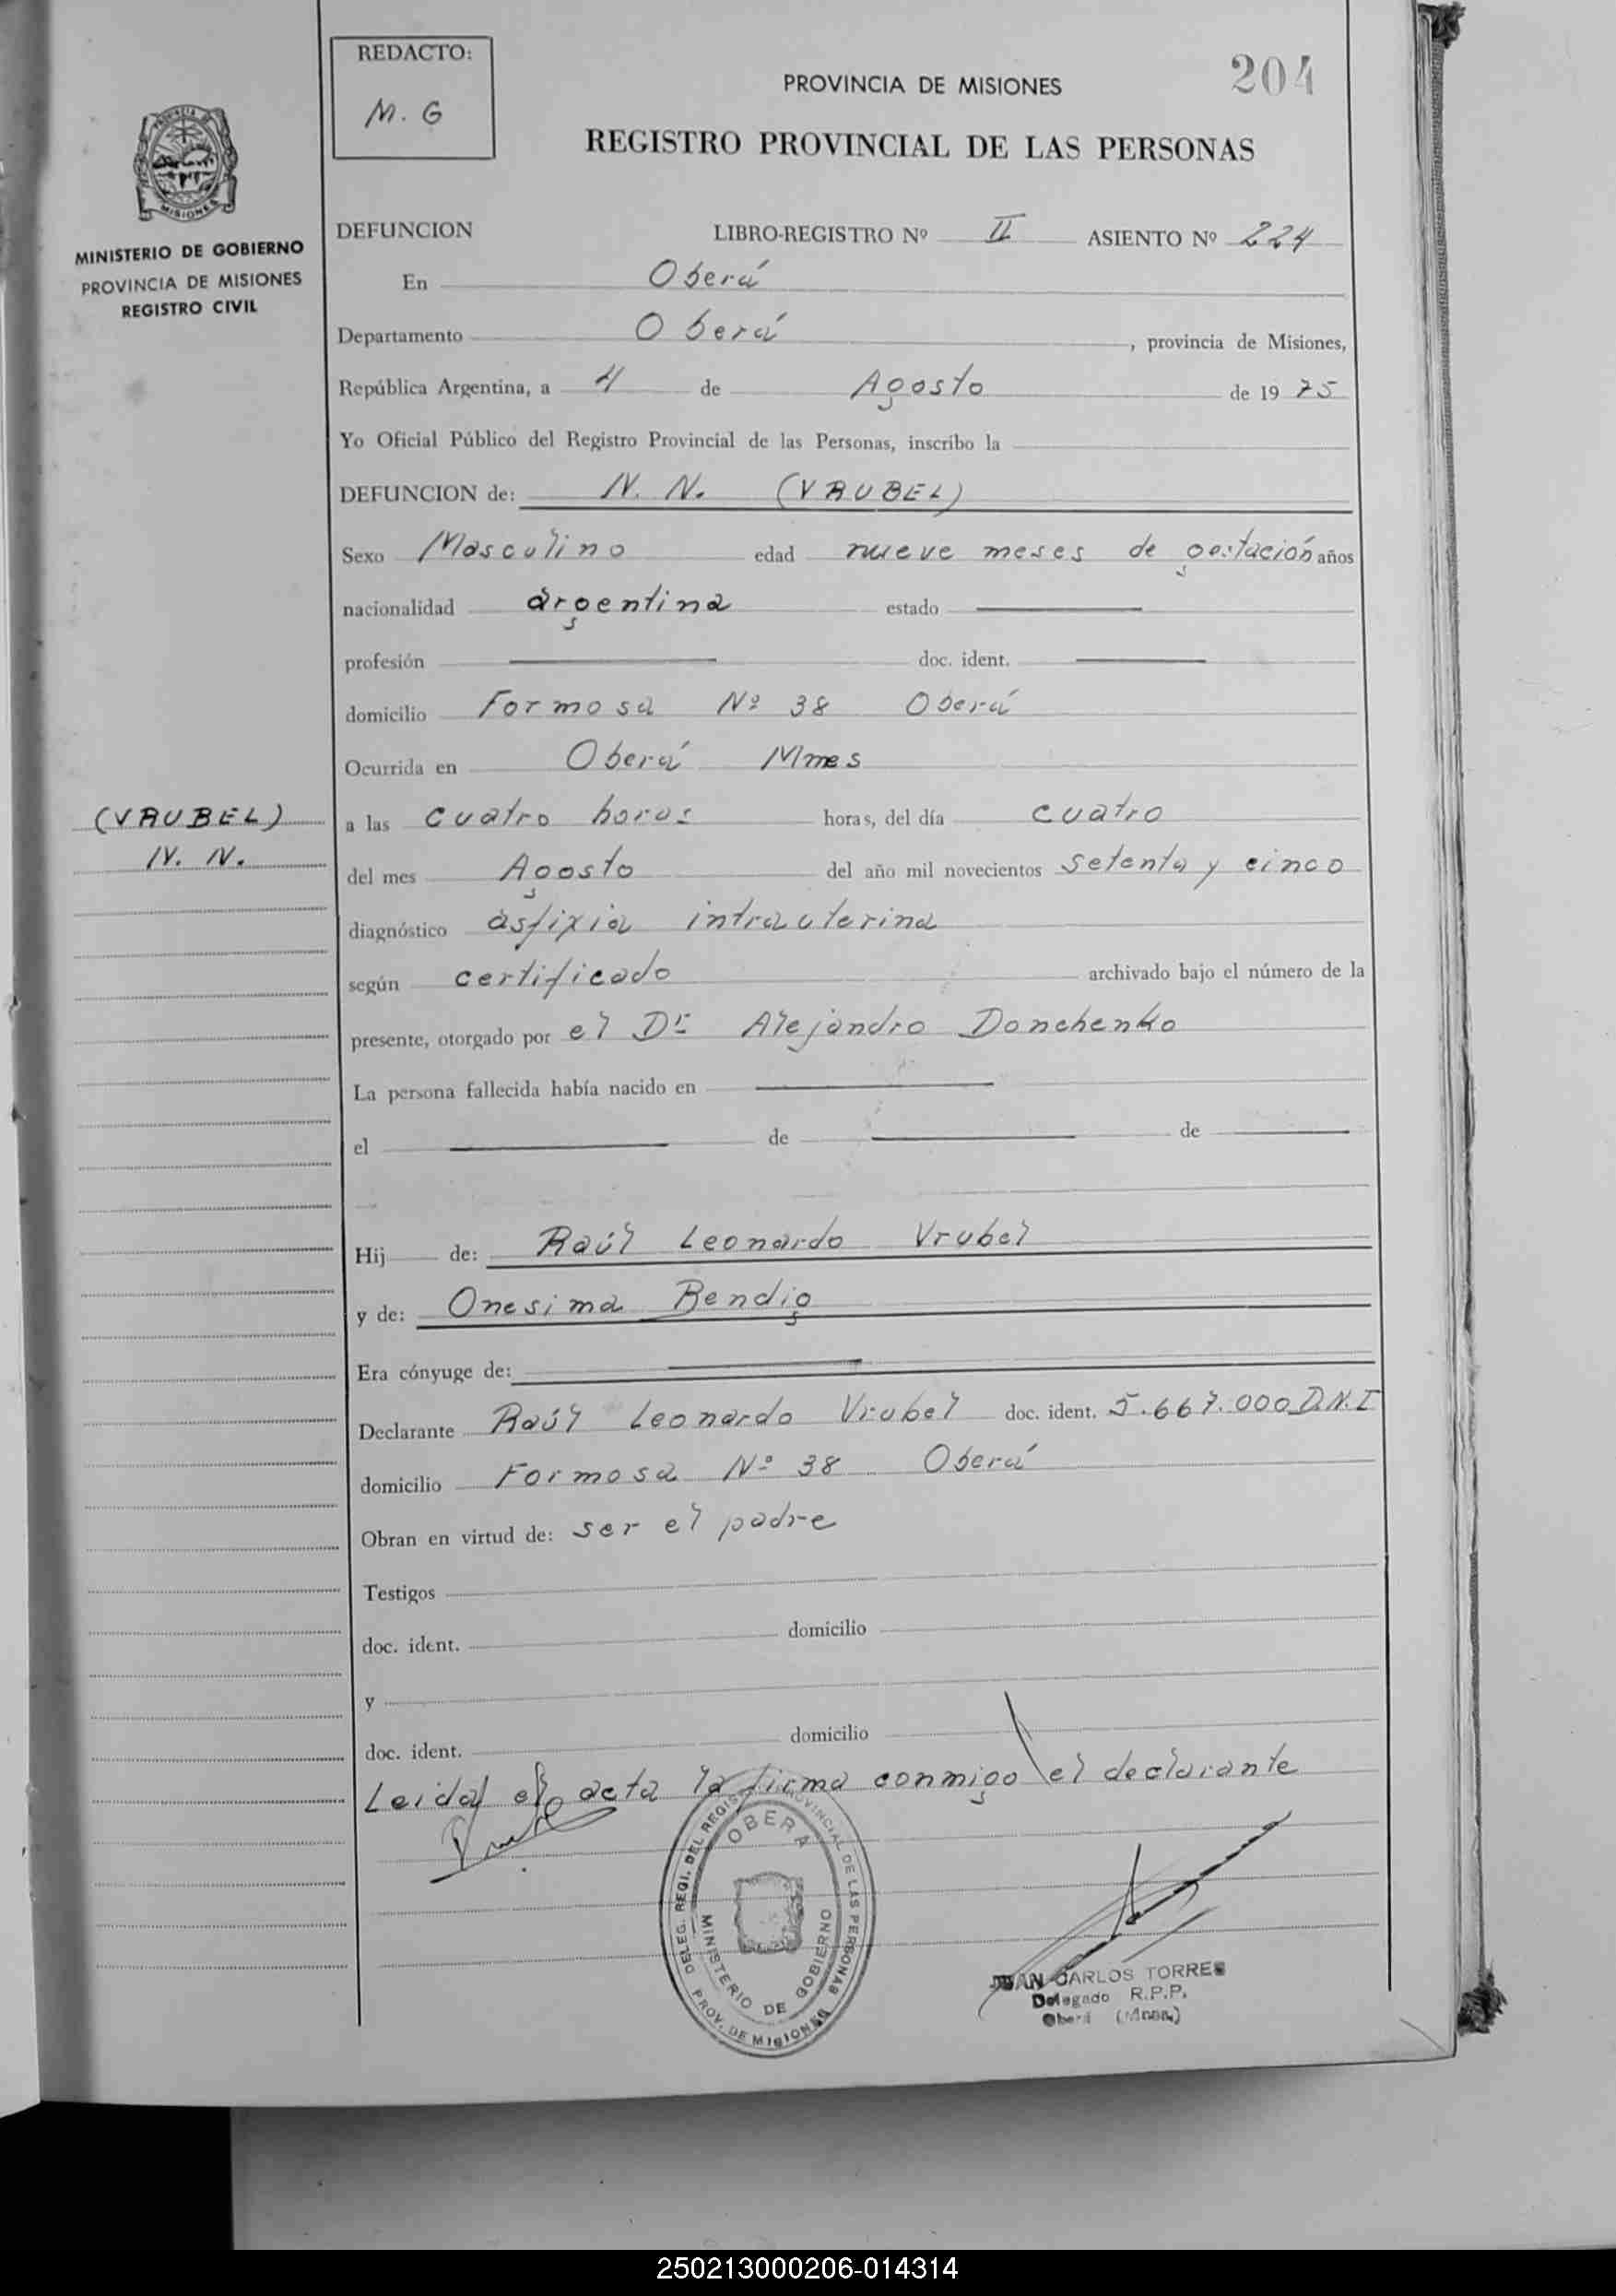 REDACTO:
M. G
204
PROVINCIA DE MISIONES
REGISTRO PROVINCIAL DE LAS PERSONAS
MISIONES
MINISTERIO DE GOBIERNO
PROVINCIA DE MISIONES
REGISTRO CIVIL
DEFUNCION LIBRO-REGISTRO Nº II ASIENTO Nº 224
En Oberá
Departamento Oberá, provincia de Misiones,
República Argentina, a 4 de Agosto de 19 75
Yo Oficial Público del Registro Provincial de las Personas, inscribo la
DEFUNCION de: N. N. (VRUBEL)
Sexo Masculino edad nueve meses de gestación años
nacionalidad argentina estado
profesión doc. ident.
domicilio Formosa Nº 38 Oberá
Ocurrida en Oberá Mnes
(VRUBEL)
N. N.
a las cuatro horas horas, del día cuatro
del mes Agosto del año mil novecientos setenta y cinco
diagnóstico asfixia intrauterina
según certificado archivado bajo el número de la
presente, otorgado por el Dr Alejandro Donchenko
La persona fallecida había nacido en
el de de
Hij de: Raúl Leonardo Vrubel
y de: Onesima Bendig
Era cónyuge de:
Declarante Raúl Leonardo Vrubel doc. ident. 5.667.000 D.N.I
domicilio Formosa Nº 38 Oberá
Obran en virtud de: ser el padre
Testigos
doc. ident. domicilio
y
doc. ident. domicilio
Leida el acta la firma conmigo el declarante
DELEG. REGI. DEL REGIS. PROVINCIAL DE LAS PERSONAS
OBERA
MINISTERIO DE GOBIERNO
PROV. DE MISIONES
JUAN CARLOS TORRES
Delegado R.P.P.
Oberá (Mnes.)
250213000206-014314